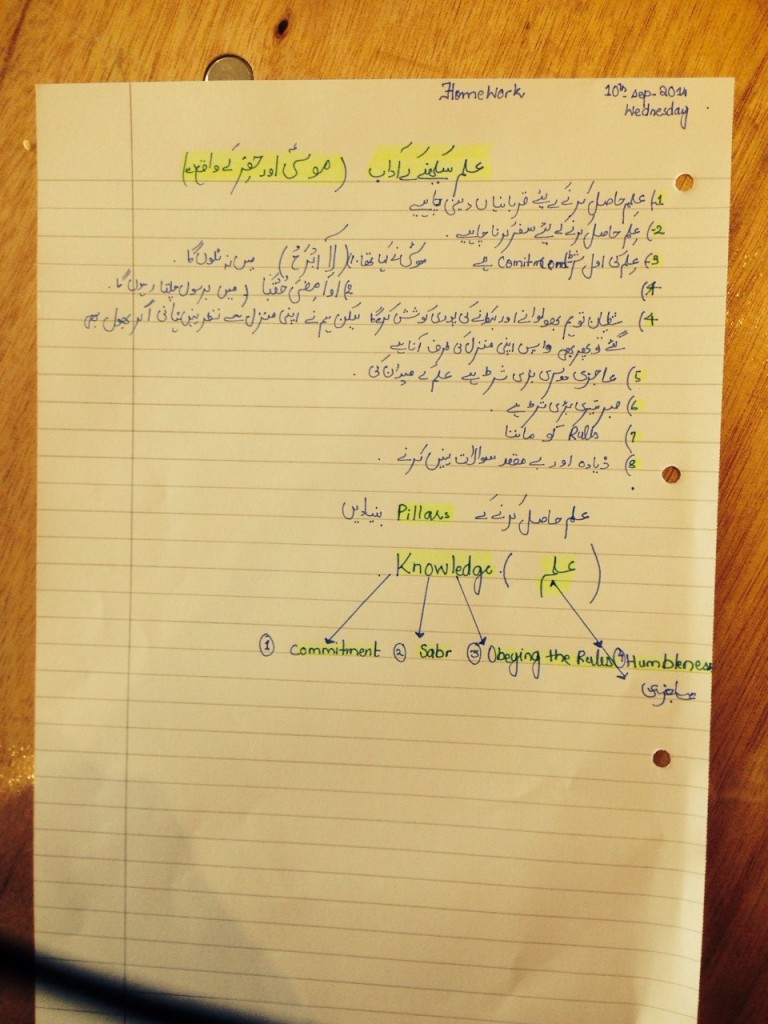 HomeWork 10th-Sep-2014
Wednesday
علم سیکھنے کے آداب (موسیٰ اور خضر کے واقع سے)
1) علم حاصل کرنے کے لیئے قربانیاں دینی چاہیے
2) علم حاصل کرنے کے لیئے سفر کرنا چاہیے۔
3) علم کی اول شرط Comitment ہے موسیٰ نے کہا تھا۔ 1 (لَآ اَبْرَحُ) میں نہ ٹلوں گا۔
4) 2) اَوْ اَمْضِیَ حُقُبًا (میں برسوں چلتا رہوں گا۔
4) شیطان تو ہم بھولوانے اور بہکانے کی پوری کوشش کریگا لیکن ہم نے اپنی منزل سے نظر نہیں ہٹانی اگر بھول بھی
گئے تو پھر بھی واپس اپنی منزل کی طرف آنا ہے
5) عاجزی دوسری بڑی شرط ہے علم کے میدان کی۔
6) صبر تیسری بڑی شرط ہے۔
7) Rules کو ماننا
8) زیادہ اور بے مقصد سوالات نہیں کرنے۔
علم حاصل کرنے کے Pillars بنیادیں
Knowledge. (علم)
① Commitment ② Sabr ③ Obeying the Rules ④ Humbleness
عاجزی